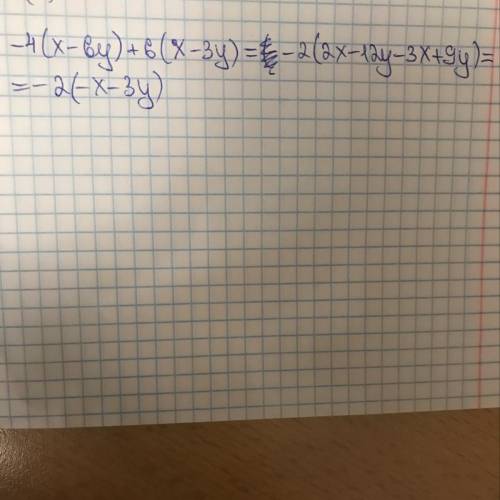 -4(x-6y)+6(x-3y)= -2(2x-12y-3x+9y)=
=-2(-x-3y)